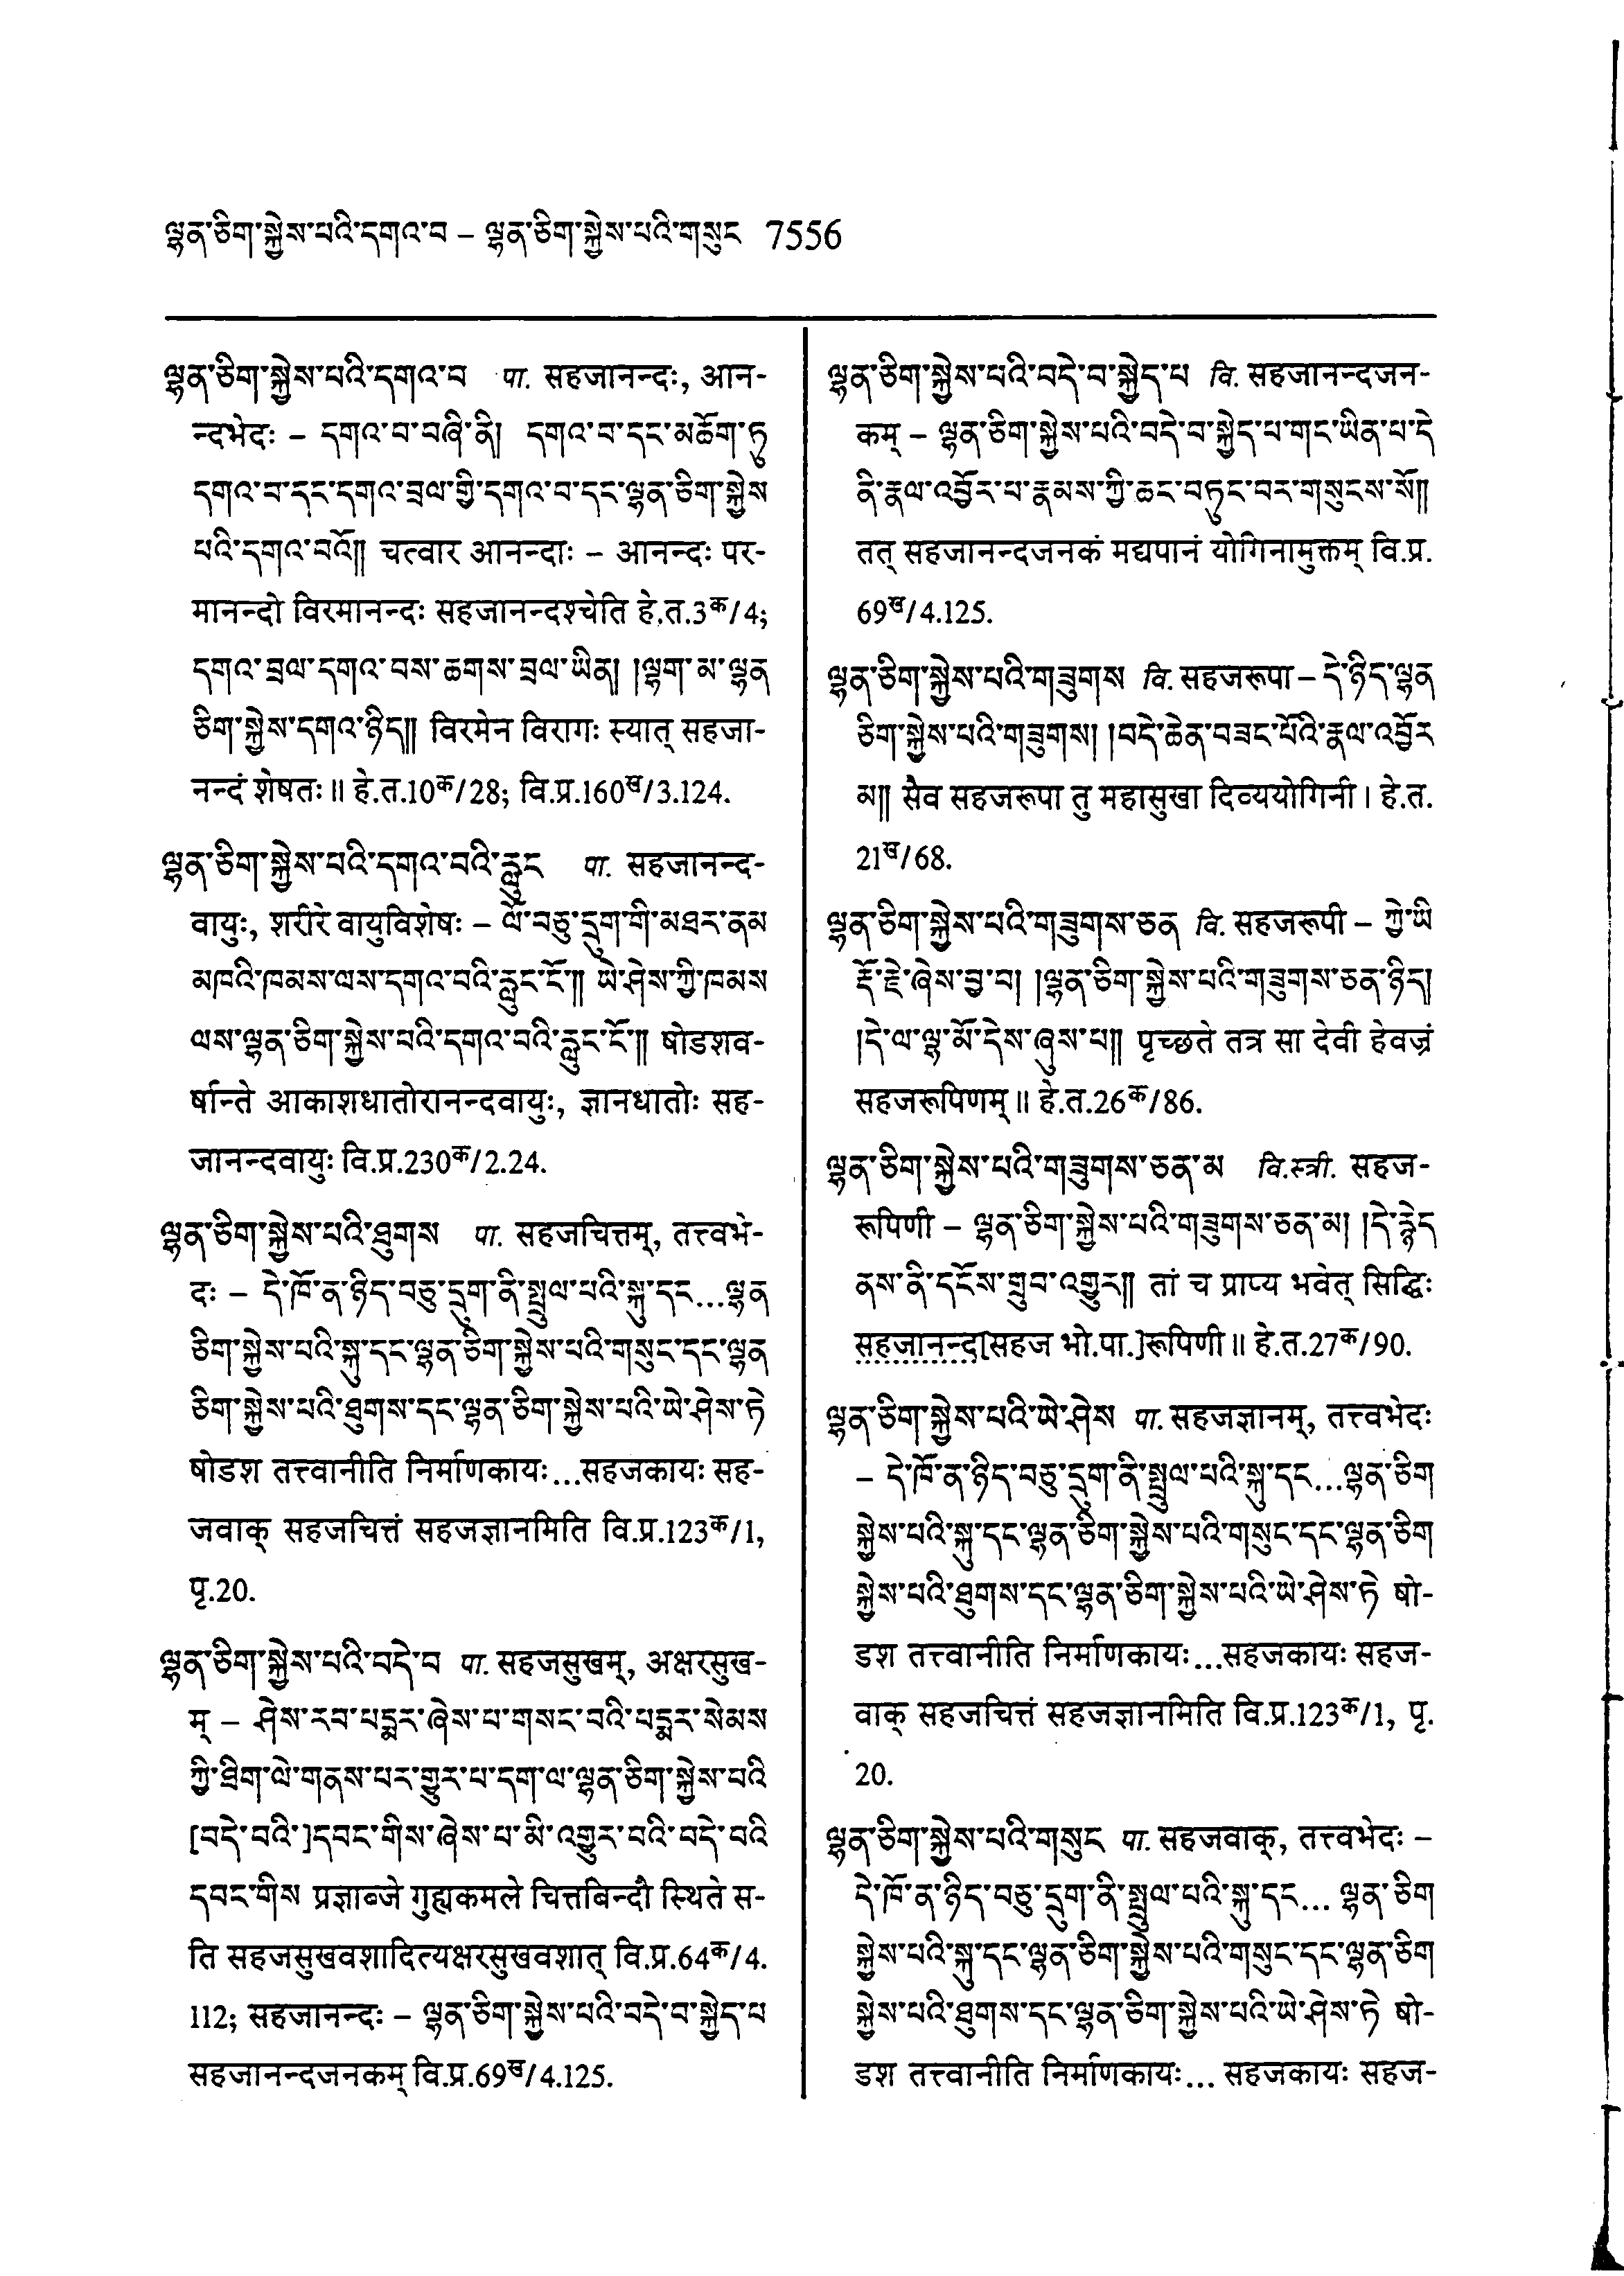 ལྷན་ཅིག་སྐྱེས་པའི་དགའ་བ – ལྷན་ཅིག་སྐྱེས་པའི་གསུང 7556
ལྷན་ཅིག་སྐྱེས་པའི་དགའ་བ पा. सहजानन्दः, आन-
न्दभेदः – དགའ་བ་བཞི་ནི། དགའ་བ་དང་མཆོག་ཏུ
དགའ་བ་དང་དགའ་བྲལ་གྱི་དགའ་བ་དང་ལྷན་ཅིག་སྐྱེས
པའི་དགའ་བའོ།། चत्वार आनन्दाः – आनन्दः पर-
मानन्दो विरमानन्दः सहजानन्दश्चेति हे.त.3क/4;
དགའ་བྲལ་དགའ་བས་ཆགས་བྲལ་ཡིན། །ལྷག་མ་ལྷན
ཅིག་སྐྱེས་དགའ་ཉིད།། विरमेन विरागः स्यात् सहजा-
नन्दं शेषतः॥ हे.त.10क/28; वि.प्र.160ख/3.124.
ལྷན་ཅིག་སྐྱེས་པའི་དགའ་བའི་རླུང पा. सहजानन्द-
वायुः, शरीरे वायुविशेषः – ལོ་བཅུ་དྲུག་གི་མཐར་ནམ
མཁའི་ཁམས་ལས་དགའ་བའི་རླུང་ངོ་།། ཡེ་ཤེས་ཀྱི་ཁམས
ལས་ལྷན་ཅིག་སྐྱེས་པའི་དགའ་བའི་རླུང་ངོ་།། षोडशव-
र्षान्ते आकाशधातोरानन्दवायुः, ज्ञानधातोः सह-
जानन्दवायुः वि.प्र.230क/2.24.
ལྷན་ཅིག་སྐྱེས་པའི་ཐུགས पा. सहजचित्तम्, तत्त्वभे-
दः – དེ་ཁོ་ན་ཉིད་བཅུ་དྲུག་ནི་སྤྲུལ་པའི་སྐུ་དང...ལྷན
ཅིག་སྐྱེས་པའི་སྐུ་དང་ལྷན་ཅིག་སྐྱེས་པའི་གསུང་དང་ལྷན
ཅིག་སྐྱེས་པའི་ཐུགས་དང་ལྷན་ཅིག་སྐྱེས་པའི་ཡེ་ཤེས་ཏེ
षोडश तत्त्वानीति निर्माणकायः...सहजकायः सह-
जवाक् सहजचित्तं सहजज्ञानमिति वि.प्र.123क/1,
पृ.20.
ལྷན་ཅིག་སྐྱེས་པའི་བདེ་བ पा. सहजसुखम्, अक्षरसुख-
म् – ཤེས་རབ་པདྨར་ཞེས་པ་གསང་བའི་པདྨར་སེམས
ཀྱི་ཐིག་ལེ་གནས་པར་གྱུར་པ་དག་ལ་ལྷན་ཅིག་སྐྱེས་པའི
[བདེ་བའི་]དབང་གིས་ཞེས་པ་མི་འགྱུར་བའི་བདེ་བའི
དབང་གིས प्रज्ञाब्जे गुह्यकमले चित्तबिन्दौ स्थिते स-
ति सहजसुखवशादित्यक्षरसुखवशात् वि.प्र.64क/4.
112; सहजानन्दः – ལྷན་ཅིག་སྐྱེས་པའི་བདེ་བ་སྐྱེད་པ
सहजानन्दजनकम् वि.प्र.69ख/4.125.
ལྷན་ཅིག་སྐྱེས་པའི་བདེ་བ་སྐྱེད་པ वि. सहजानन्दजन-
कम् – ལྷན་ཅིག་སྐྱེས་པའི་བདེ་བ་སྐྱེད་པ་གང་ཡིན་པ་དེ
ནི་རྣལ་འབྱོར་པ་རྣམས་ཀྱི་ཆང་བཏུང་བར་གསུངས་སོ།།
तत् सहजानन्दजनकं मद्यपानं योगिनामुक्तम् वि.प्र.
69ख/4.125.
ལྷན་ཅིག་སྐྱེས་པའི་གཟུགས वि. सहजरूपा – དེ་ཉིད་ལྷན
ཅིག་སྐྱེས་པའི་གཟུགས། །བདེ་ཆེན་བཟང་པོའི་རྣལ་འབྱོར
མ།། सैव सहजरूपा तु महासुखा दिव्ययोगिनी। हे.त.
21ख/68.
ལྷན་ཅིག་སྐྱེས་པའི་གཟུགས་ཅན वि. सहजरूपी – ཀྱེ་ཡི
རྡོ་རྗེ་ཞེས་བྱ་བ། །ལྷན་ཅིག་སྐྱེས་པའི་གཟུགས་ཅན་ཉིད།
།དེ་ལ་ལྷ་མོ་དེས་ཞུས་པ།། पृच्छते तत्र सा देवी हेवज्रं
सहजरूपिणम्॥ हे.त.26क/86.
ལྷན་ཅིག་སྐྱེས་པའི་གཟུགས་ཅན་མ वि.स्त्री. सहज-
रूपिणी – ལྷན་ཅིག་སྐྱེས་པའི་གཟུགས་ཅན་མ། །དེ་རྙེད
ནས་ནི་དངོས་གྲུབ་འགྱུར།། तां च प्राप्य भवेत् सिद्धिः
सहजानन्द[सहज भो.पा.]रूपिणी॥ हे.त.27क/90.
ལྷན་ཅིག་སྐྱེས་པའི་ཡེ་ཤེས पा. सहजज्ञानम्, तत्त्वभेदः
– དེ་ཁོ་ན་ཉིད་བཅུ་དྲུག་ནི་སྤྲུལ་པའི་སྐུ་དང...ལྷན་ཅིག
སྐྱེས་པའི་སྐུ་དང་ལྷན་ཅིག་སྐྱེས་པའི་གསུང་དང་ལྷན་ཅིག
སྐྱེས་པའི་ཐུགས་དང་ལྷན་ཅིག་སྐྱེས་པའི་ཡེ་ཤེས་ཏེ षो-
डश तत्त्वानीति निर्माणकायः...सहजकायः सहज-
वाक् सहजचित्तं सहजज्ञानमिति वि.प्र.123क/1, पृ.
20.
ལྷན་ཅིག་སྐྱེས་པའི་གསུང पा. सहजवाक्, तत्त्वभेदः –
དེ་ཁོ་ན་ཉིད་བཅུ་དྲུག་ནི་སྤྲུལ་པའི་སྐུ་དང... ལྷན་ཅིག
སྐྱེས་པའི་སྐུ་དང་ལྷན་ཅིག་སྐྱེས་པའི་གསུང་དང་ལྷན་ཅིག
སྐྱེས་པའི་ཐུགས་དང་ལྷན་ཅིག་སྐྱེས་པའི་ཡེ་ཤེས་ཏེ षो-
डश तत्त्वानीति निर्माणकायः... सहजकायः सहज-